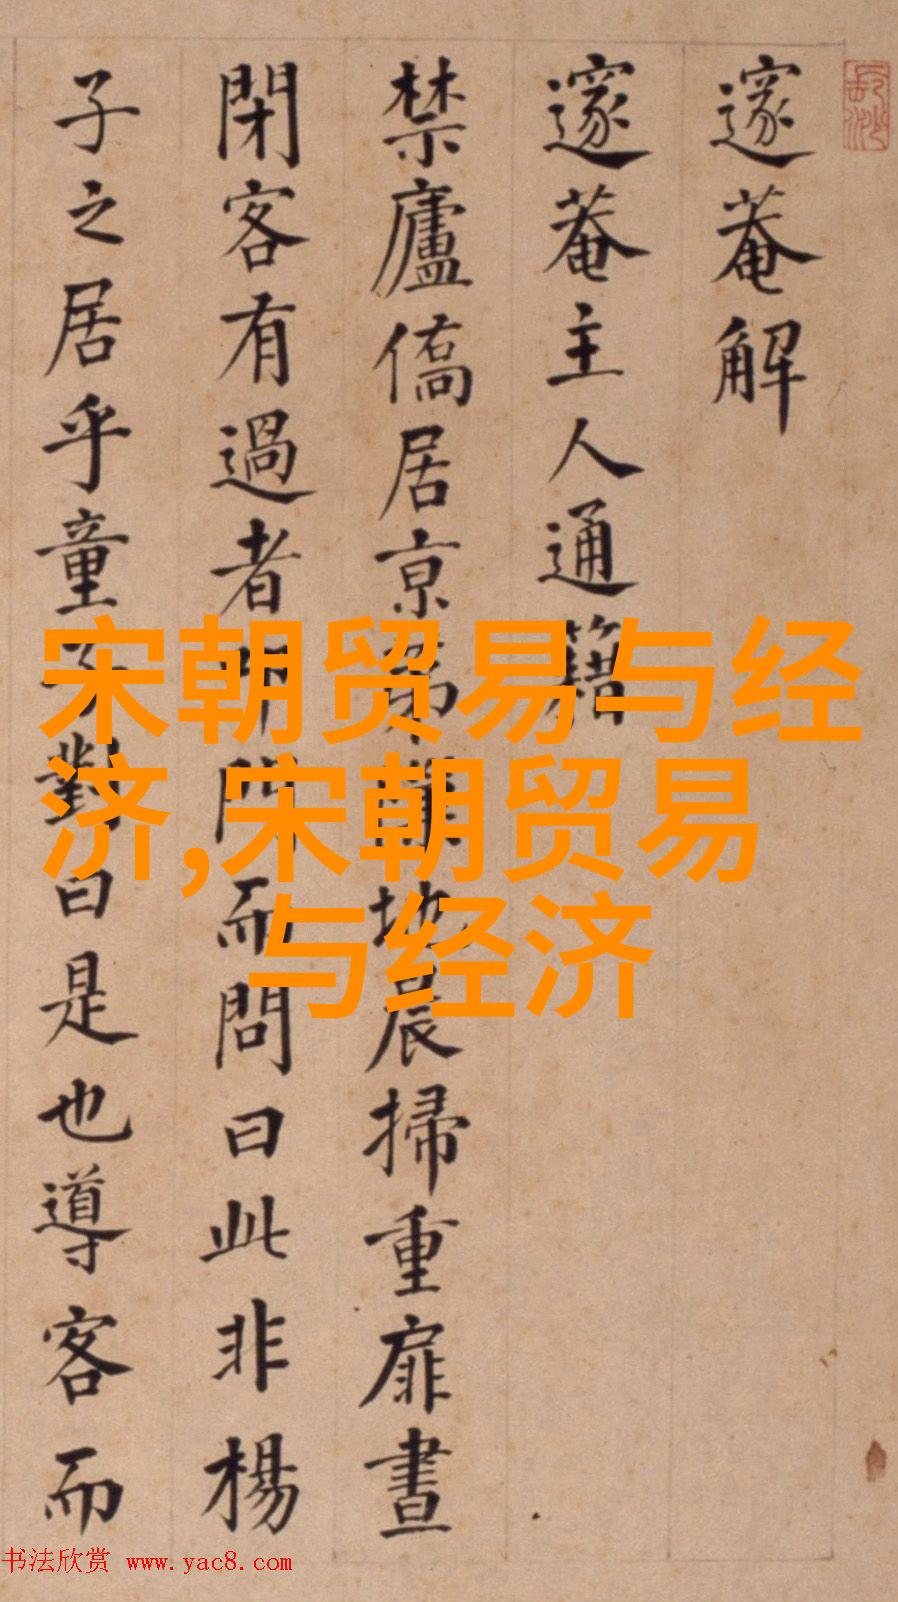 邃菴解
邃菴主人通籍
禁廬僑居京第
地晨掃重扉晝
閉客有過者
門而問曰此非楊
子之居乎童子對
曰是也導客而
宋朝贸易与经
济,宋朝贸易
与经济
书法欣赏 www.yac8.com